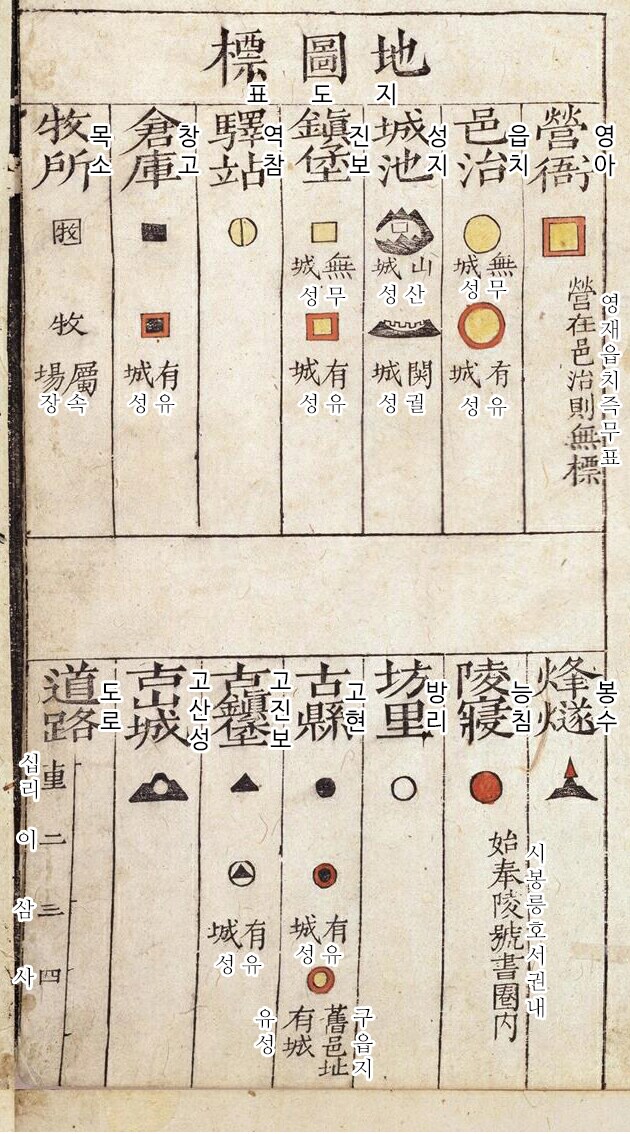 地圖標
지도표
營衙
영아
營在邑治則無標
영재읍치즉무표
邑治
읍치
無城
무성
有城
유성
城池
성지
山城
산성
闕城
궐성
鎭堡
진보
無城
무성
有城
유성
驛站
역참
倉庫
창고
有城
유성
牧所
목소
牧
牧
屬場
속장
烽燧
봉수
陵寢
능침
始奉陵號書圈內
시봉릉호서권내
坊里
방리
古縣
고현
有城
유성
舊邑址
구읍지
有城
유성
古鎭堡
고진보
有城
유성
古山城
고산성
道路
도로
十里
십리
二
이
三
삼
四
사